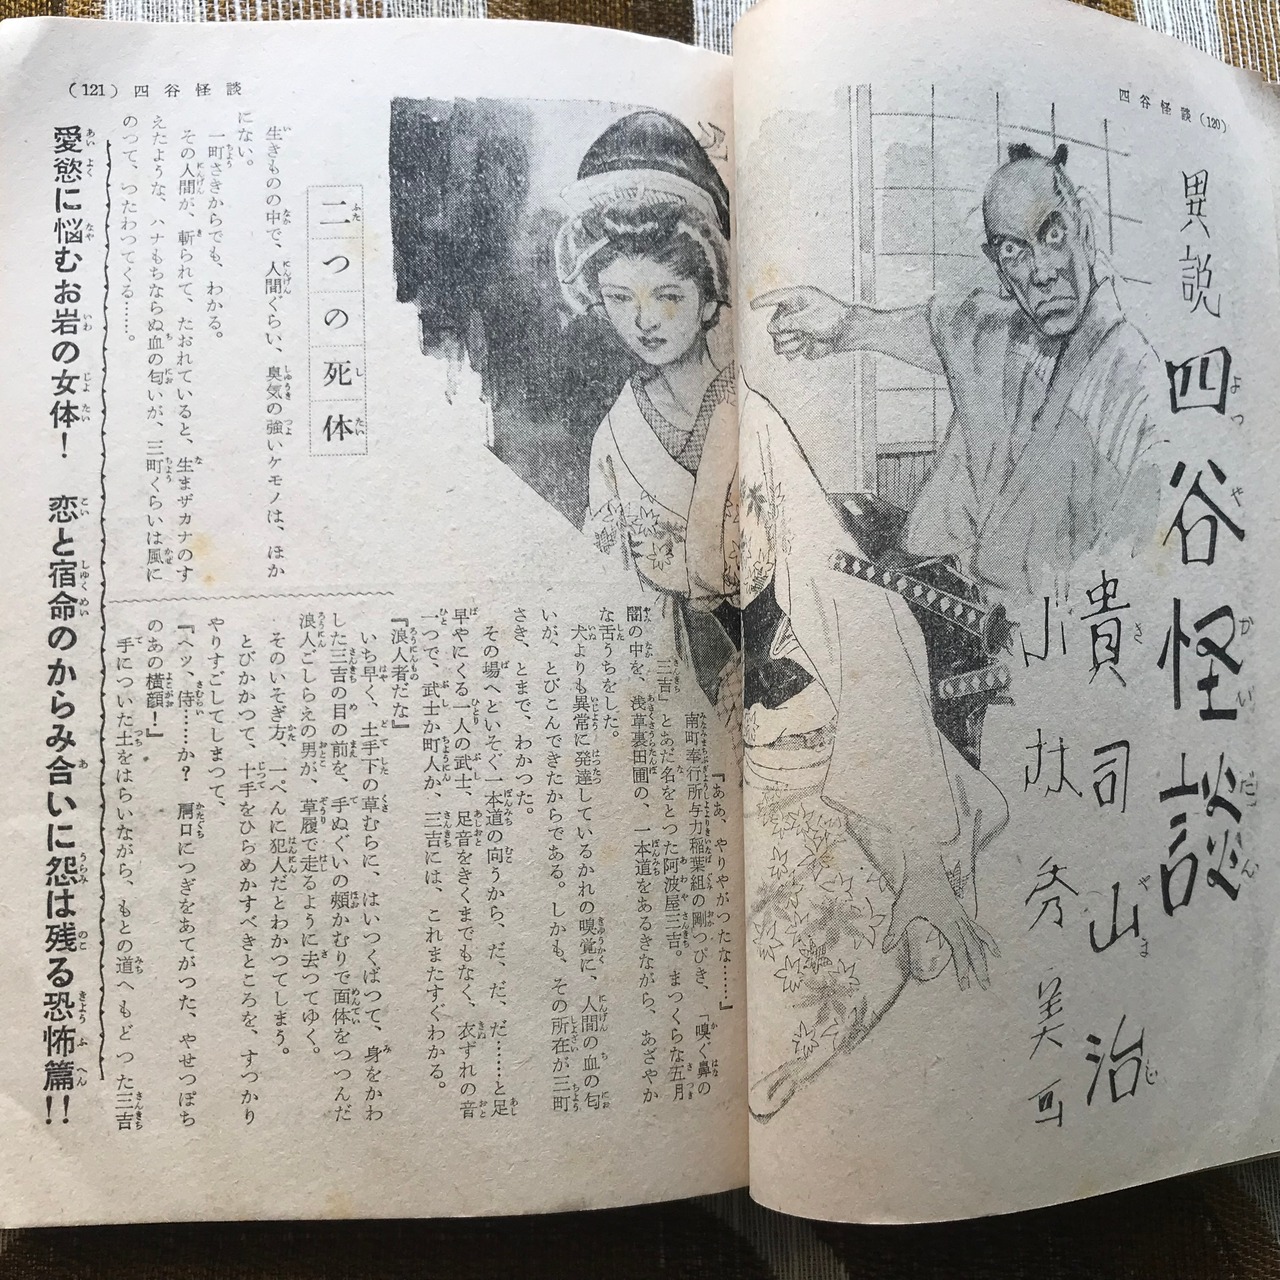 四谷怪談(120)
異説
四谷怪談
よつやかいだん
貴司山治
きしやまじ
小林秀美画
(121)四谷怪談
二つの死体
生きものの中で、人間ぐらい、臭気の強いケモノは、ほか
にない。
一町さきからでも、わかる。
その人間が、斬られて、たおれていると、生まザカナのす
えたような、ハナもちならぬ血の匂いが、三町くらいは風に
のつて、つたわつてくる……。
『ああ、やりやがつたな……』
南町奉行所与力稲葉組の剛つぴき、「嗅ぐ鼻の
三吉」とあだ名をとつた阿波屋三吉。まつくらな五月
闇の中を、浅草裏田圃の、一本道をあるきながら、あざやか
な舌うちをした。
犬よりも異常に発達しているかれの嗅覚に、人間の血の匂
いが、とびこんできたからである。しかも、その所在が三町
さき、とまで、わかつた。
その場へといそぐ一本道の向うから、だ、だ、だ……と足
早やにくる一人の武士、足音をきくまでもなく、衣ずれの音
一つで、武士か町人か、三吉には、これまたすぐわかる。
『浪人者だな』
いち早く、土手下の草むらに、はいつくばつて、身をかわ
した三吉の目の前を、手ぬぐいの頰かむりで面体をつつんだ
浪人ごしらえの男が、草履で走るように去つてゆく。
そのいそぎ方、一ぺんに犯人だとわかつてしまう。
とびかかつて、十手をひらめかすべきところを、すつかり
やりすごしてしまつて、
『ヘッ、侍……か? 肩口につぎをあてがつた、やせつぽち
のあの横顔!』
手についた土をはらいながら、もとの道へもどつた三吉
愛慾に悩むお岩の女体! 恋と宿命のからみ合いに怨は残る恐怖篇!!